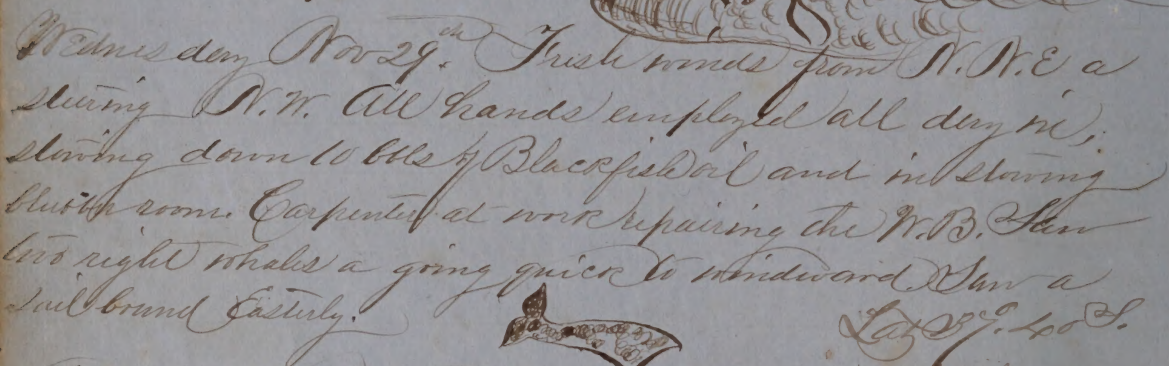 Wednesday Nov 29th. Fresh winds from N. N. E a
steering N. W. All hands employed all day in,
stowing down 10 bbls of Blackfish oil and in stowing
blubber room. Carpenter at work repairing the W. B. Saw
two right whales a going quick to windward. Saw a
sail bound Easterly.
Lat 37°. 40 S.